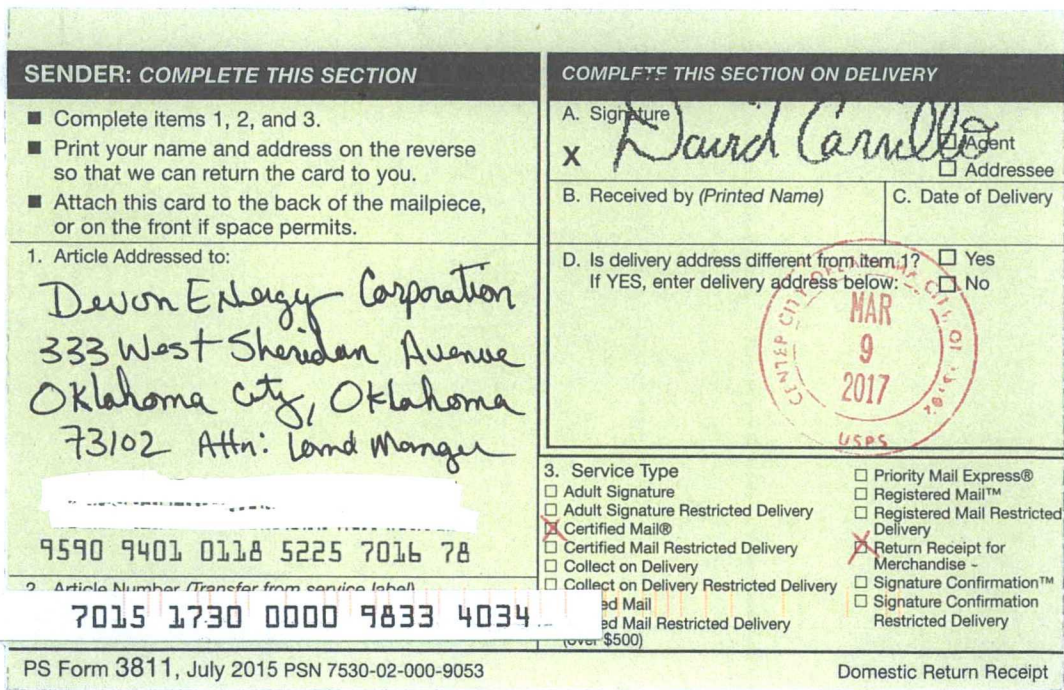 SENDER: COMPLETE THIS SECTION
■ Complete items 1, 2, and 3.
■ Print your name and address on the reverse
so that we can return the card to you.
■ Attach this card to the back of the mailpiece,
or on the front if space permits.
1. Article Addressed to:
Devon Energy Corporation
333 West Sheridan Avenue
Oklahoma City, Oklahoma
73102 Attn: Land Manger
9590 9401 0118 5225 7016 78
2. Article Number (Transfer from service label)
7015 1730 0000 9833 4034
COMPLETE THIS SECTION ON DELIVERY
A. Signature
X David Carrillo
☐ Agent
☐ Addressee
B. Received by (Printed Name)
C. Date of Delivery
D. Is delivery address different from item 1? ☐ Yes
If YES, enter delivery address below: ☐ No
CENTER CITY OKLAHOMA CITY, OK
MAR
9
2017
USPS
3. Service Type
☐ Adult Signature
☐ Adult Signature Restricted Delivery
☒ Certified Mail®
☐ Certified Mail Restricted Delivery
☐ Collect on Delivery
☐ Collect on Delivery Restricted Delivery
ed Mail
ed Mail Restricted Delivery
(over $500)
☐ Priority Mail Express®
☐ Registered Mail™
☐ Registered Mail Restricted
Delivery
☒ Return Receipt for
Merchandise
☐ Signature Confirmation™
☐ Signature Confirmation
Restricted Delivery
PS Form 3811, July 2015 PSN 7530-02-000-9053
Domestic Return Receipt